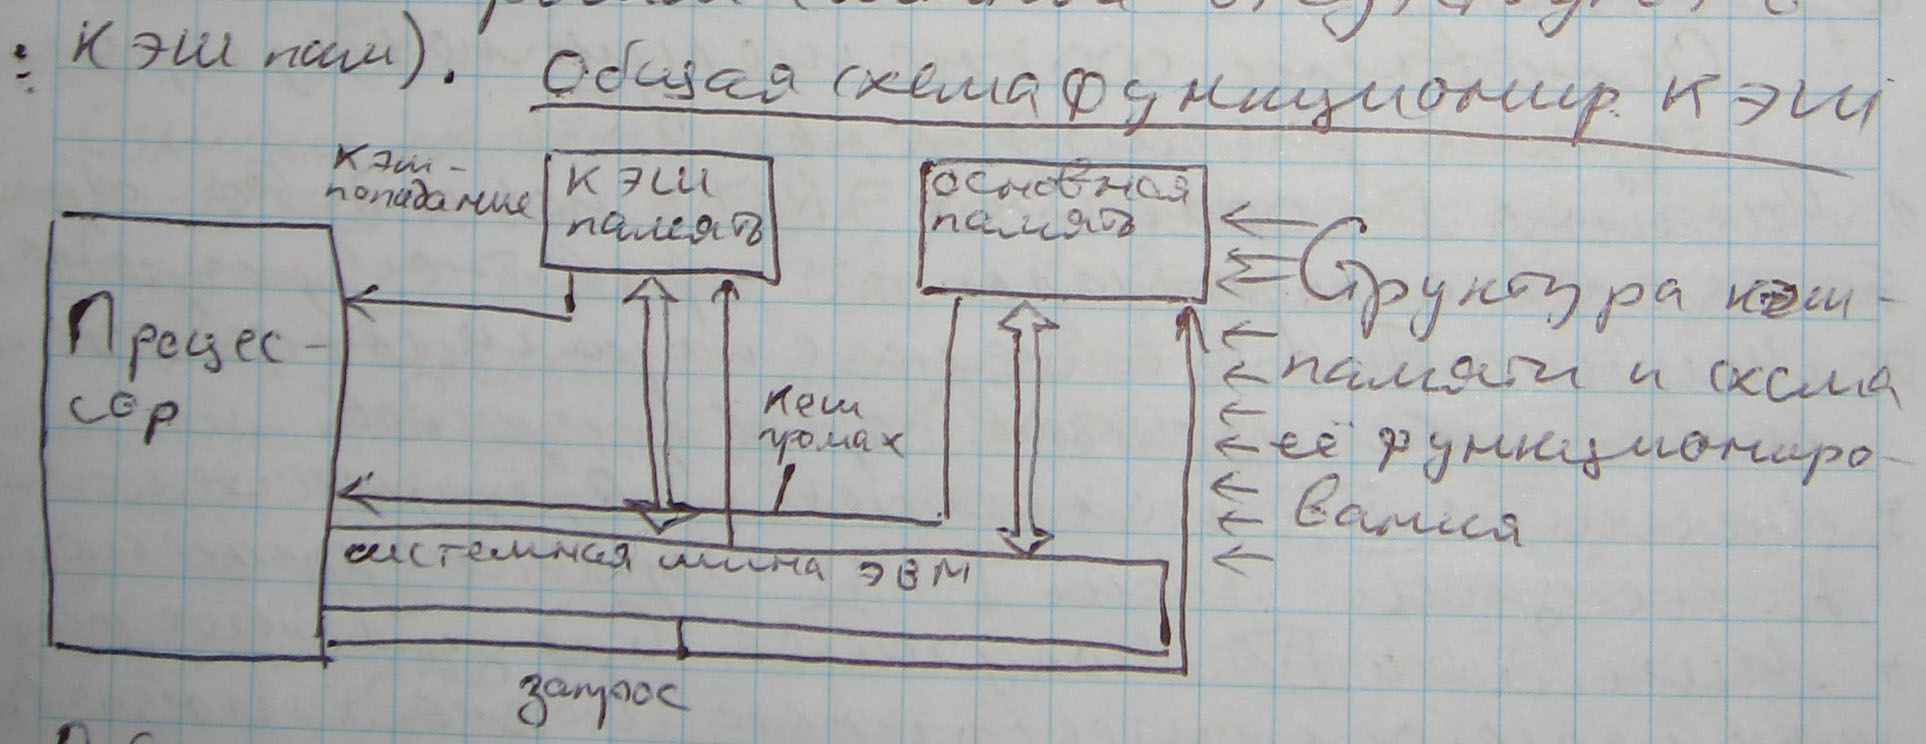 КЭШ пам).
Общая схема функционир. КЭШ
Кэш-
попадание
КЭШ
память
основная
память
Процес-
сор
Кеш
промах
Структура кэш-
памяти и схема
её функциониро-
вания
системная шина ЭВМ
запрос